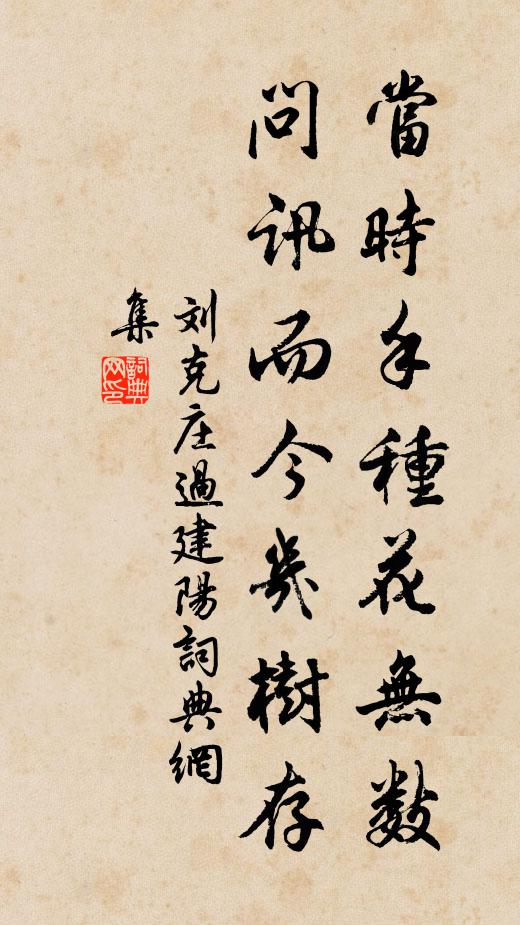 當時手種花無数
問訊而今幾樹存
刘克庄過建陽詞典網
集
詞典
网印